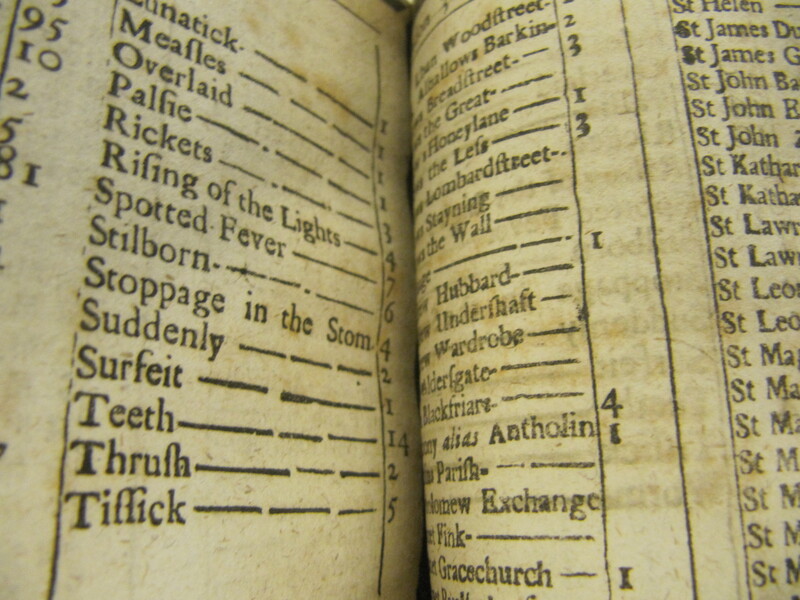 95
10
2
5
81
Lunatick
Meaſles — 1
Overlaid — 1
Palſie — 1
Rickets — 1
Riſing of the Lights — 3
Spotted Fever — 4
Stilborn — 7
Stoppage in the Stom 6
Suddenly — 4
Surfeit — 2
Teeth — 1
Thruſh — 14
Tiſſick — 2
5
Woodſtreet
Alhallows Barkin 2
Breadſtreet 3
the Great
Honeylane 1
the Leſs 3
Lombardſtreet
Stayning
the Wall
1
Hubbard
Underſhaft
Wardrobe
Alderſgate
Blackfriars 4
alias Antholin 1
Pariſh
Exchange
Fink
Gracechurch — 1
St Helen
St James Du
St James G
St John Ba
St John E
St John
St Kathar
St Katha
St Lawr
St Law
St Leo
St Leo
St Mag
St Ma
St Ma
St M
St M
St M
St M